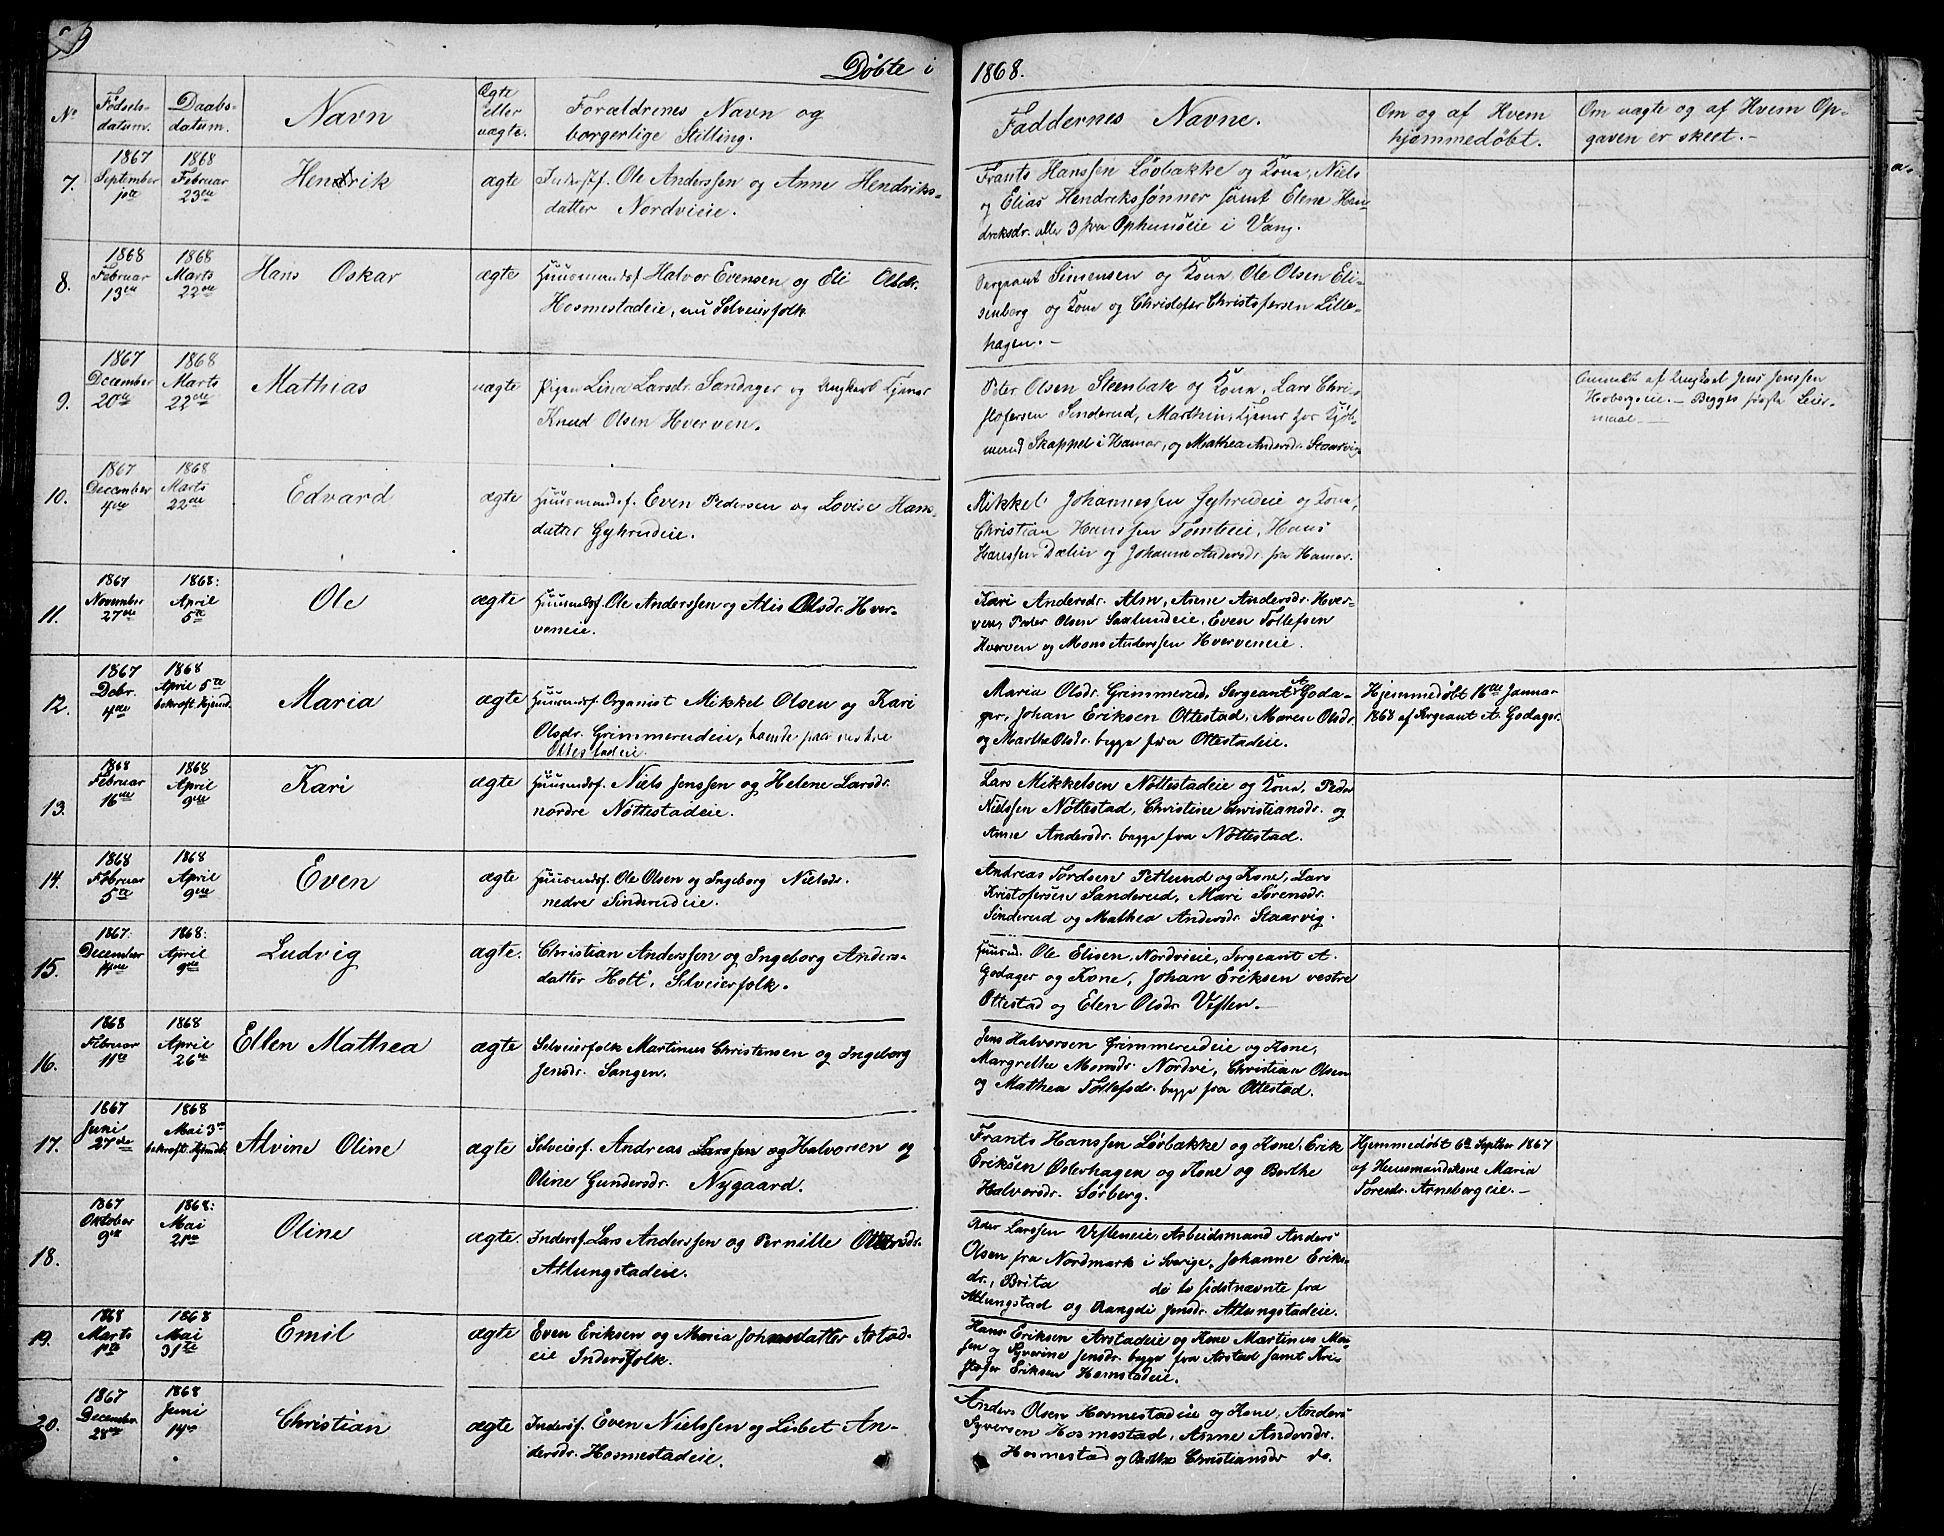 Døbte i 1868.
No
Fødsels-
datum.
Daabs-
datum.
Navn
Ægte
eller
uægte.
Forældrenes Navn og
borgerlige Stilling.
Faddernes Navne.
Om og af Hvem
hjemmedøbt.
Om uægte og af Hvem Op-
gaven er skeet.-
7.
1867
September
1ste
1868
Februar
23de
Hendrik
ægte
Inderstf. Ole Anderssen og Anne Hendriks-
datter Nordvieie.
Frants Hanssen Løvbække og Kone, Niels
og Elias Hendrikssønner samt Elene Hen-
driksdr. alle 3 fra Ophuuseie i Vang.
8.
1868
Februar
13de
1868
Marts
22de
Hans Oskar
ægte
Huusmandsf. Halvor Evensen og Eli Olsdr.
Hosmestadeie, nu Selveierfolk.
Sergeant Simensen og Kone, Ole Olsen Eli-
senberg og Kone og Christofer Christofersen Lille-
hagen.-
9.
1867
December
20de
1868
Marts
22de
Mathias
uægte
Pigen Lina Larsdr. Sandager og Ungkarl Tjener
Knud Olsen Hverven.
Peter Olsen Steenbæk og Kone, Lars Chri-
stofersen Sinderud, Marthin, Tjener hos Kjøb-
mand Skappel i Hamar, og Mathea Andersdr. Staarvig
Anmeldt af Ungkarl Jens Jenssen
Hobergseie.- Begges første Leier-
maal.-
10.
1867
December
4de
1868
Marts
22de
Edvard
ægte
Huusmandsf. Even Pedersen og Lovise Hans-
datter Gyhrudeie.
Mikkel Johannessen Gyhrudeie og Kone,
Christian Hanssen Tomteie, Hans
Hanssen Dælin og Johanne Andersdr. fra Hamar.
11.
1867
November
27de
1868.
April
5te
Ole
ægte
Huusmdsf. Ole Anderssen og Alis Olsdr. Hver-
veneie.
Kari Andersdr. Alm, Anne Andersdr. Hver-
ven, Peder Olsen Saxlundeie, Even Tollefsen
Hverven og Mons Anderssen Hverveneie.
12.
1867
Debr.
4de
1868
April 5te
bekræft. Hjemd.
Maria
ægte
Huusmdsf. Organist Mikkel Olsen og Kari
Olsdr. Grimmerudeie, hende fra vestre
Ottestadeie.
Maria Olsdr. Grimmerud, Sergeant A. Goda-
ger, Johan Eriksen Ottestad, Maren Olsdr.
og Marthe Olsdr. begge fra Ottestadeie.
Hjemmedøbt 16de Januar
1868 af Sergeant A. Godager.
13.
1868
Februar
16de
1868
April
9de
Kari
ægte
Huusmdsf. Niels Jenssen og Helene Larsdr.
nordre Nøttestadeie.
Lars Mikkelsen Nøttestadeie og Kone, Peder
Nielssen Nøttestad, Christine Christiansdr. og
Anne Andersdr. begge fra Nøttestad.
14.
1868
Februar
5te
1868
April
9de
Even
ægte
Huusmdsf. Ole Olsen og Ingeborg Nielsdr.
nedre Sinderudeie.
Andreas Tordsen Petlund og Kone, Lars
Kristofersen Sanderud, Mari Sørensdr.
Sinderud og Mathea Andersdr. Staarvig.
15.
1867.
December
14de
1868.
April
9de
Ludvig
ægte.
Christian Anderssen og Ingeborg Anders-
datter Hott, Selveierfolk.
Huusmd. Ole Elisen, Nordvieie, Sergeant A.
Godager og Kone, Johan Eriksen vestre
Ottestad og Elen Olsdr. Veflen.-
16.
1868
Februar
11te
1868
April
26de
Ellen Mathea
ægte
Selveierfolk Martinus Christensen og Ingeborg
Jensdr. Sangen.
Jens Halvorsen Grimmerudeie og Kone,
Margrethe Monsdr. Nordvi, Christian Olsen
og Mathea Tollefsdr. begge fra Ottestad.
17.
1867
Juni
27de
1868
Mai 3die
bekræft. Hjemdb.
Alvine Oline
ægte
Selveierf. Andreas Larssen og Halvorsen og
Oline Gundersdr. Nygaard.
Frants Hanssen Løvbække og Kone, Erik
Eriksen Osterhagen og Kone og Berthe
Halvorsdr. Sørberg.
Hjemmedøbt 6te Septber 1867
af Huusmandskone Maria
Toresdr. Arnebergeie.-
18.
1867
Oktober
9de
1868.
Mai
21de
Oline
ægte.
Indersf. Lars Anderssen og Pernille Olsdr.
Atlungstadeie.
Peder Larssen Vefleneie, Arbeidsmand Anders
Olsen fra Nordmark i Sverige, Johanne Eriks-
dr., Brita de to sidstnævnte fra
Atlungstad og Rangdi Jensdr. Atlungstadeie.
19.
1868
Marts
1ste
1868
Mai
31te
Emil
ægte
Even Eriksen og Maria Johnsdatter Arstad-
eie Indersfolk.
Hans Eriksen Arstadeie og Kone Martinus Mon-
sen og Syverine Jensdr. begge fra Arstad samt Kri-
stofer Eriksen Hosmstadeie.
20.
1867
December
28de
1868
Juni
14de
Christian
ægte
Indersf. Even Nielssen og Lisbet An-
dersdr. Hosmestadeie.
Anders Olsen Hosmestadeie og Kone, Anders
Syversen Hosmestad, Anne Andersdr.
Hosmestad og Berthe Christiansdr do.